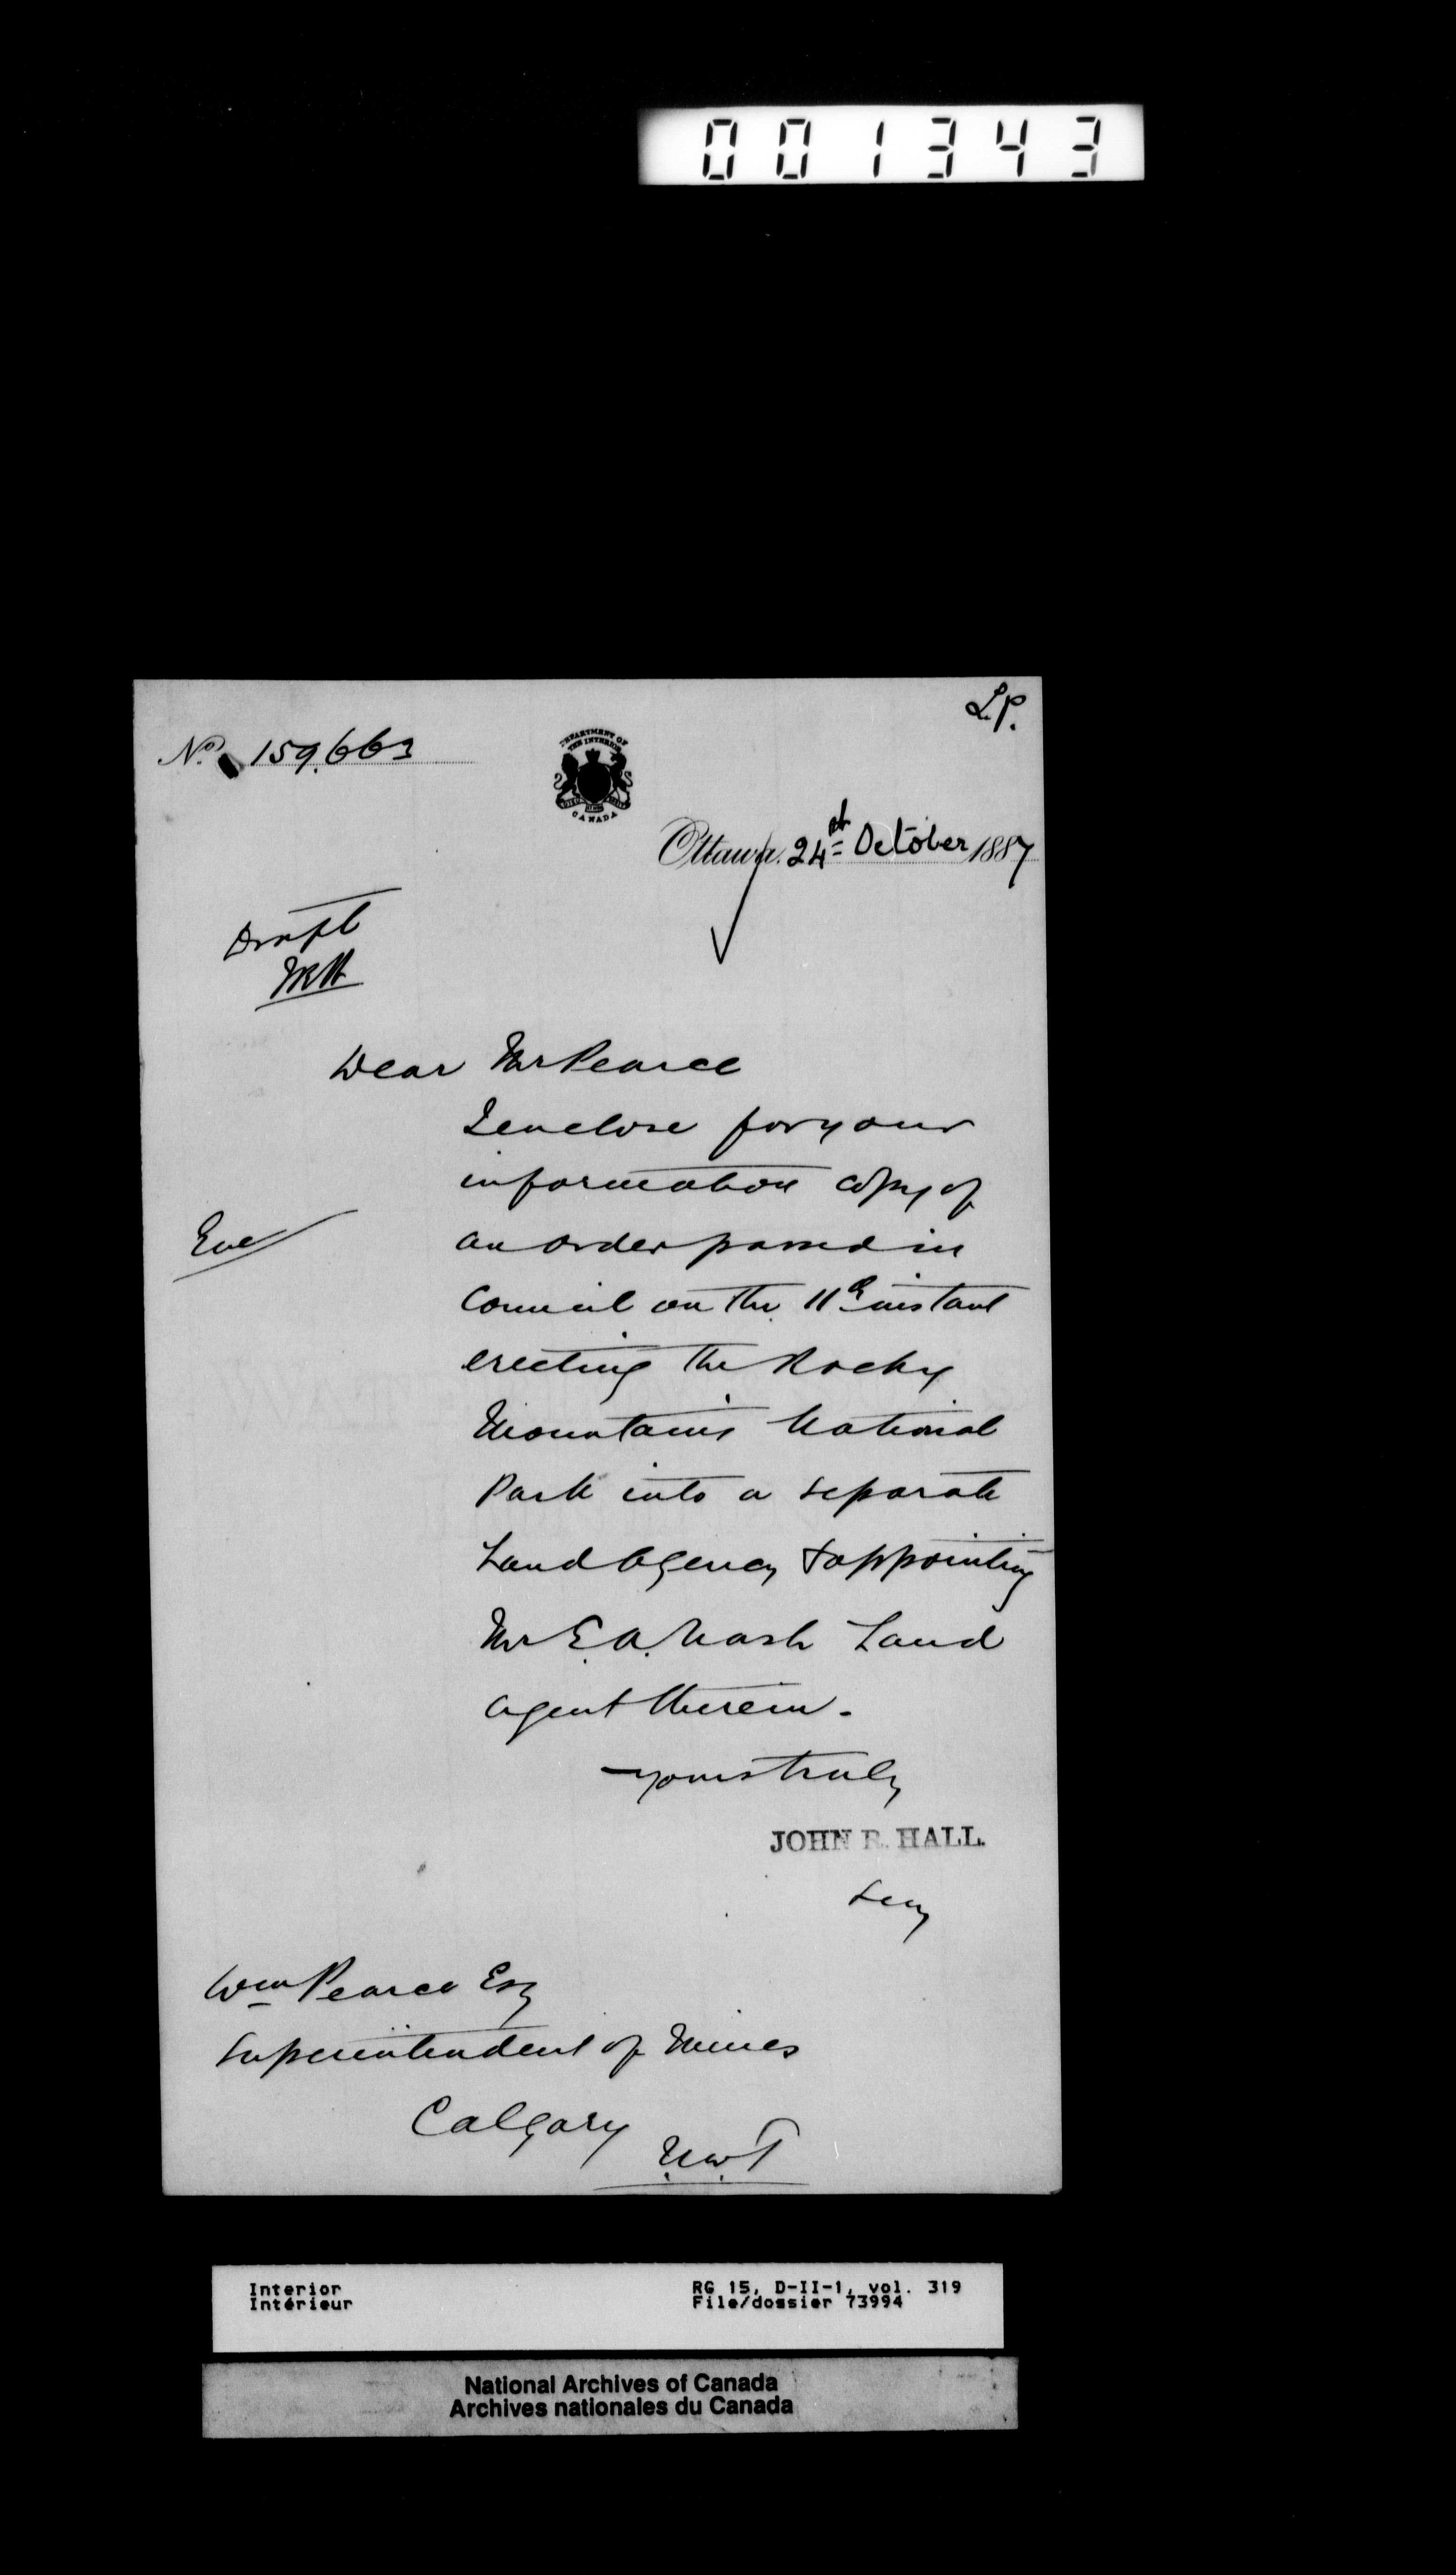 001343
L.P.
No. 159,663
DEPARTMENT OF
THE INTERIOR
CANADA
Ottawa, 24th October 1887
Draft
Dear Mr Pearce
I enclose for your
information copy of
an order passed in
Council on the 11th instant
erecting the Rocky
Mountains National
Park into a separate
Land Agency & appointing
Mr E. A. Nash Land
agent therein.
yours truly
JOHN R. HALL.
Secy
Wm Pearce Esq
Superintendent of Mines
Calgary
N.W.T
Interior
Intérieur
RG 15, D-II-1, vol. 319
File/dossier 73994
National Archives of Canada
Archives nationales du Canada